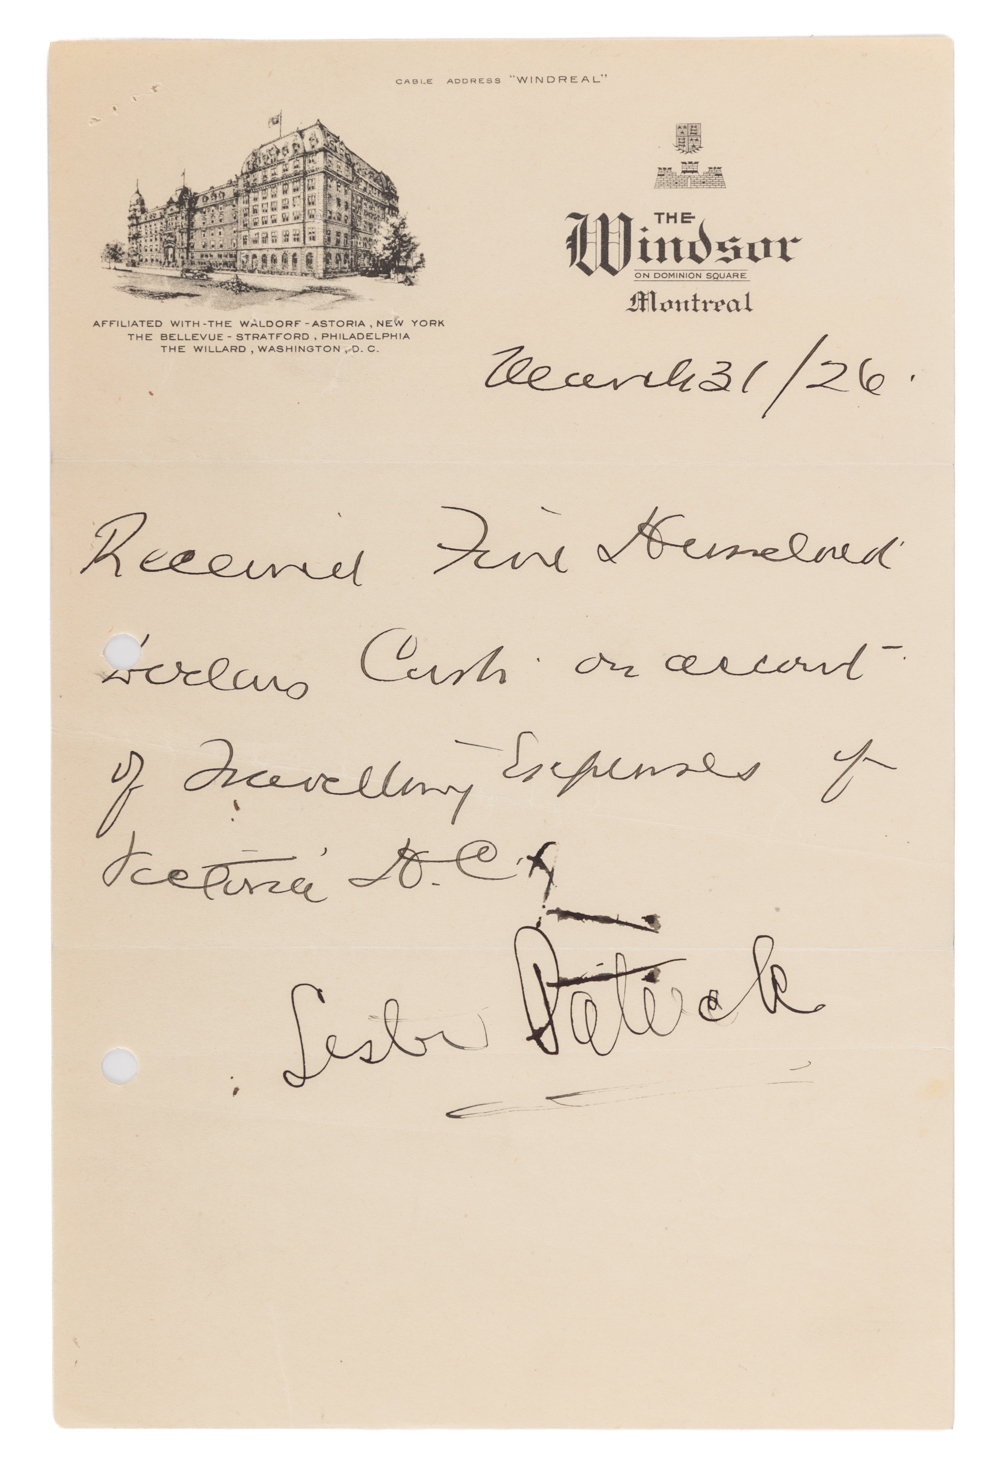 CABLE ADDRESS "WINDREAL"
THE
Windsor
ON DOMINION SQUARE
Montreal
AFFILIATED WITH - THE WALDORF - ASTORIA, NEW YORK
THE BELLEVUE - STRATFORD, PHILADELPHIA
THE WILLARD, WASHINGTON, D. C.
March 31/26.
Received Five Hundred
Dollars Cash on account
of Travelling Expenses of
Victoria H.C.
Lester Patrick